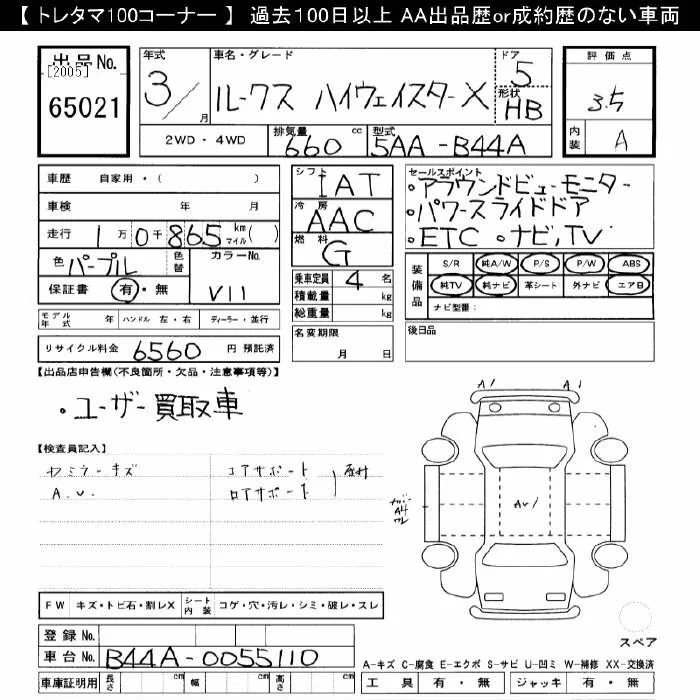 【 トレタマ100コーナー 】 過去100日以上 AA出品歴or成約歴のない車両
出品No.
[2005]
65021
年式 3/ 月
車名・グレード ルークス ハイウェイスターX
ドア 5
形状 HB
2WD・4WD
排気量 660 cc
型式 5AA-B44A
評価点 3.5
内装 A
車歴 自家用・( )
車検 年 月
走行 1万0千865 km( ) マイル
色 パープル
色替
カラーNo. V11
保証書 有・無
モデル年式 年 ハンドル 左・右 ディーラー・並行
リサイクル料金 6560 円 預託済
シフト IAT
冷房 AAC
燃料 G
乗車定員 4 名
積載量 kg
総重量 kg
名変期限
月 日
セールスポイント
・アラウンドビューモニター
・パワースライドドア
・ETC ・ナビ,TV
装備品
S/R 純A/W P/S P/W ABS
純TV 純ナビ 革シート 外ナビ エアB
ナビ型番:
後日品
【出品店申告欄(不良箇所・欠品・注意事項等)】
・ユーザー買取車
【検査員記入】
A.U.
コアサポート
ロアサポート
A1 A1
AU1
FW キズ・トビ石・割レX シート内装 コゲ・穴・汚レ・シミ・破レ・スレ
登録No.
車台No. B44A-0055110
車庫証明用 長さ cm 幅 cm 高さ cm
スペア
A-キズ C-腐食 E-エクボ S-サビ U-凹ミ W-補修 XX-交換済
工具 有・無 ジャッキ 有・無